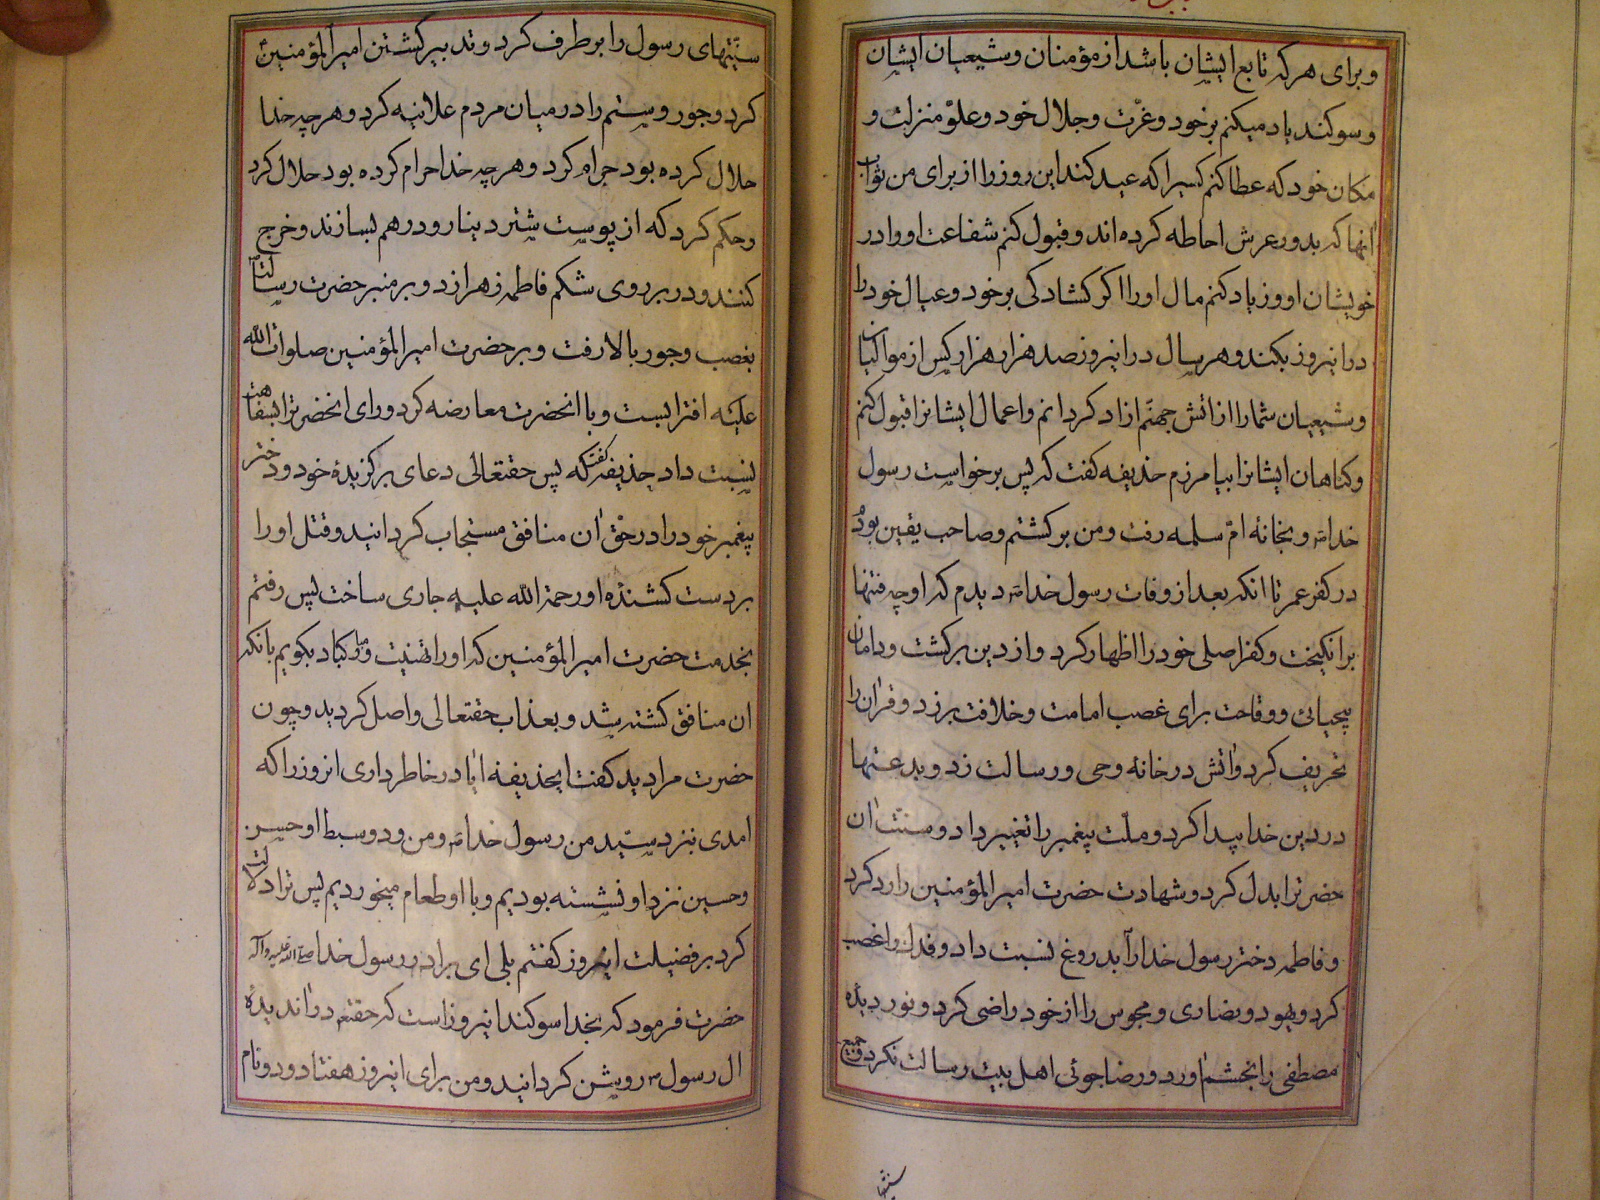 و برای هر که تابع ایشان باشد از مؤمنان و شیعیان ایشان
و سوکند یاد میکنم بر خود و عزّت و جلال خود و علوّ منزلت و
مکان خود که عطا کنم کسیرا که عید کند این روز را از برای من ثواب
آنها که بدور عرش احاطه کرده اند و قبول کنم شفاعت او را در
خویشان او و زیاد کنم مال او را اکر کشادکی بر خود و عیال خود را
در اینروز بکند و هر سال در اینروز صد هزار هزار کس از موالیان
و شیعیان شما را از آتش جهنّم آزاد کردانم و اعمال ایشانرا قبول کنم
و کناهان ایشانرا بیامرزم حذیفه کفت که پس برخواست رسول
خدا و بخانهٔ امّ سلمه رفت و من برکشتم و صاحب یقین بودم
در کفر عمر تا انکه بعد از وفات رسول خدا دیدم که او چه فتنها
برانکیخت و کفر اصلی خود را اظهار کرد و از دین برکشت و دامان
بیحیائی و وقاحت برای غصب امامت و خلافت بر زد و قرآن را
تحریف کرد و آتش در خانه وحی و رسالت زد و بدعتها
در دین خدا پیدا کرد و ملّت پیغمبر را تغییر داد و سنت آن
حضرترا بدل کرد و شهادت حضرت امیرالمؤمنین را رد کرد
و فاطمه دختر رسول خدا را بدروغ نسبت داد و فدک را غصب
کرد و یهود و نصاری و مجوس را از خود راضی کرد و نور دیدهٔ
مصطفی را بخشم آورد و رضاجوئی اهل بیت رسالت نکرد و جمیع
سنتها
سنّتهای رسول را بر طرف کرد و تدبیر کشتن امیرالمؤمنین
کرد و جور و ستم را در میان مردم علانیه کرد و هر چه خدا
حلال کرده بود حرام کرد و هر چه خدا حرام کرده بود حلال کرد
و حکم کرد که از پوست شتر دینار و درهم بسازند و خرج
کنند و در بر روی شکم فاطمه زهرا زد و بر منبر حضرت رسالت
بغصب و جور بالا رفت و بر حضرت امیرالمؤمنین صلوات الله
علیه افترا بست و با انحضرت معارضه کرد و رای انحضرترا بسفاهت
نسبت داد حذیفه کفت که پس حقتعالی دعای برکزیدهٔ خود و دختر
پیغمبر خود را در حق آن منافق مستجاب کردانید و قتل او را
بر دست کشندهٔ او رحمة الله علیه جاری ساخت پس رفتم
بخدمت حضرت امیرالمؤمنین که او را تهنیت و مبارکباد بکویم بانکه
ان منافق کشته شد و بعذاب حقتعالی واصل کردید و چون
حضرت مرا دید کفت ایحذیفه ایا در خاطر داری انروز را که
امدی بنزد سیّد من رسول خدا و من و دو سبط او حسن
و حسین نزد او نشسته بودیم و با او طعام میخوردیم پس ترا دلالت
کرد بر فضیلت اینروز کفتم بلی ای برادر رسول خدا صلی الله علیه واله
حضرت فرمود که بخدا سوکند اینروز است که حقتعم در آن دیدهٔ
ال رسول را روشن کردانید و من برای اینروز هفتاد و دو نام